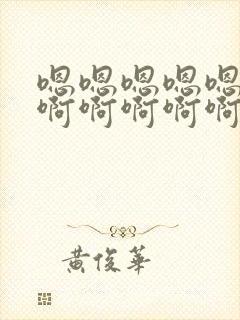 嗯嗯嗯嗯嗯
啊啊啊啊啊
黄俊华